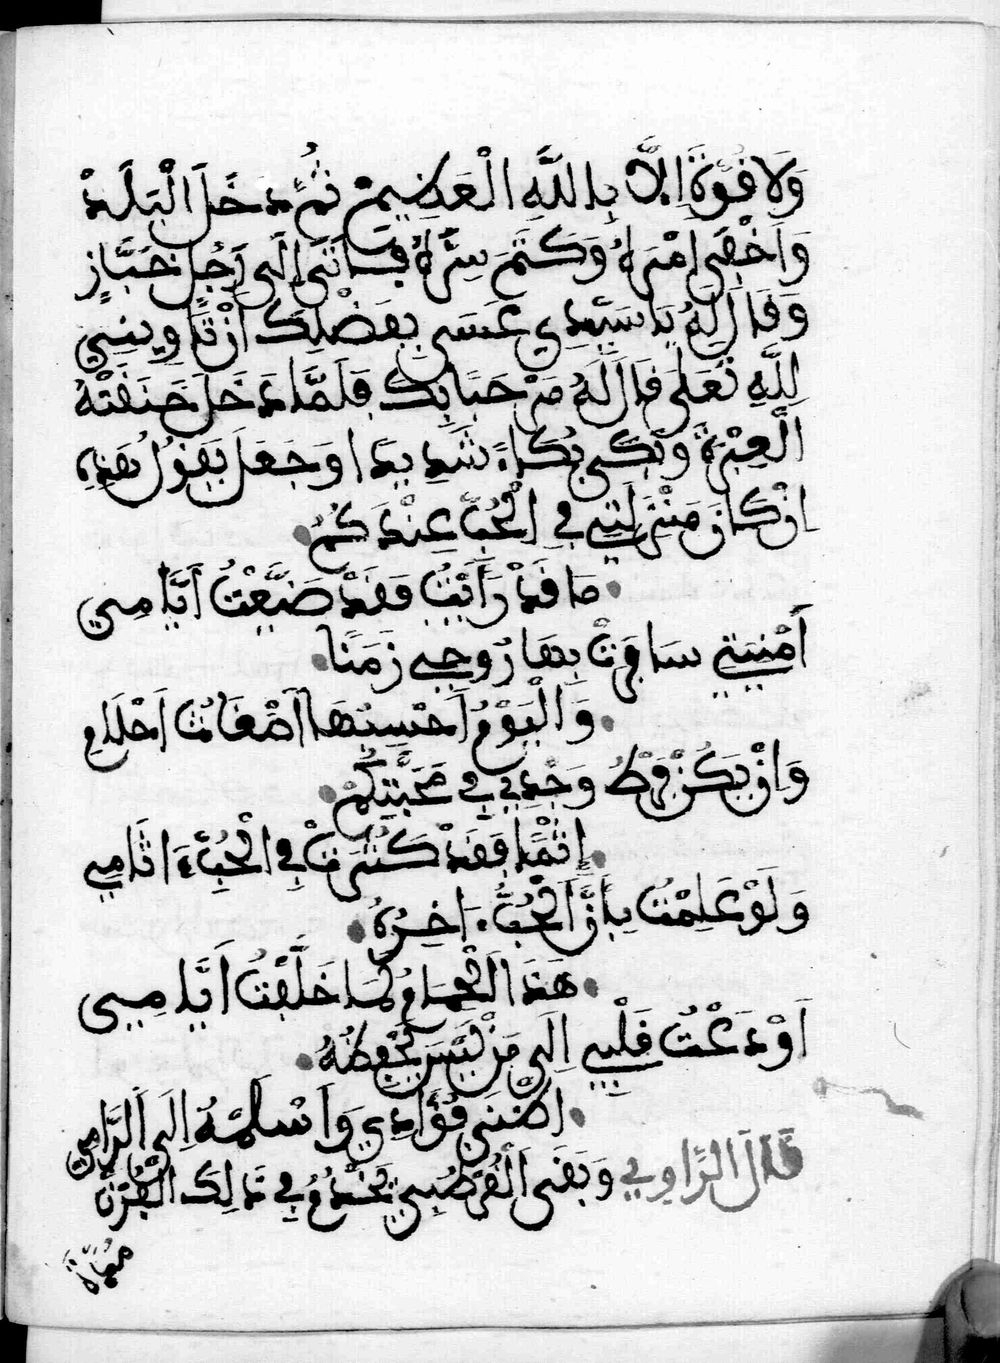 وَلَا قُوَّةَ اِلَّا بِاللَّهِ الْعَظِيمْ ثُمَّ دَخَلَ الْبَلَدْ
وَاَخْفَى اَمْرَهُ وَكَتَمَ سِرَّهُ فَاَتَى اِلَى رَجُلٍ خَبَّازٍ
وَقَالَ لَهُ يَا سَيِّدِي عَسَى بِفَضْلِكَ اَنْ تَاوِينِي
لِلَّهِ تَعَلَى قَالَ لَهُ مَرْحَبًا بِكَ فَلَمَّا دَخَلَ خَنَقَتْهُ
الْعِبْرَةَ وَبَكَى بُكَاءً شَدِيدًا وَجَعَلَ يَقُولُ بَهَذِهِ
اِنْ كَانَ مَنْزِلَتِي فِي الْحُبِّ عِنْدَكُمُ
مَا قَدْ رَأَيْتُ فَقَدْ ضَيَّعْتُ اَيَّامِي
أُمْنِيَتِي سَافَرَتْ بِهَا رُوحِي زَمَنًا
وَالْيَوْمُ اَحْسِبُهَا اَضْغَاثُ اَحْلَامِ
وَاِنْ يَكُنْ فَرْطُ وَجْدِي فِي مَحَبَّتِكُمْ
اِثْمًا فَقَدْ كَثُرَتْ فِي الْحُبِّ ءَاثَامِي
وَلَوْ عَلِمْتُ بِاَنَّ الْحُبَّ ءَاخِرُهُ
هَذَا الْحِمَامُ لَمَا خَلَّفْتُ اَيَّامِي
اَوْدَعْتُ قَلْبِي اِلَى مَنْ لَيْسَ يَحْفِظُهُ
اَضْنَى فُؤَادِي وَاَسْلَمَهُ اِلَى الرَّامِي
قَالَ الرَّاوِي وَبَقَى الْقُرْطُبِي يَخْدَمُ فِي ذَالِكَ الْفُرْنْ